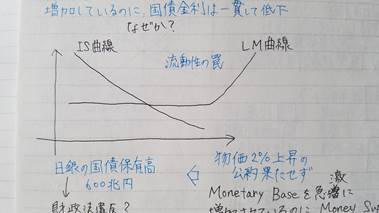 増加しているのに、国債金利は一貫して低下
なぜか?
IS曲線
LM曲線
流動性の罠
日銀の国債保有高
600兆円
物価2%上昇の
公約果たせず
激
Monetary Baseを急増に
増加させているのに Money Su
財政法違反?